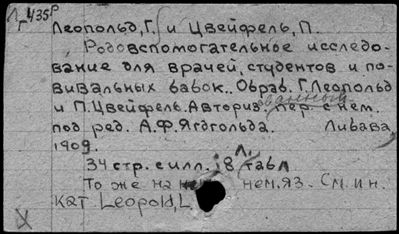 Леопольд, Г. и Цвейфель, П.
Родовспомогательное исследо-
вание для врачей, студентов и по-
вивальных бабок.. Обраб. Г. Леопольд
и П. Цвейфель. Авториз. пер. с нем.
под ред. А.Ф. Ягдгольда. Либава,
1909.
34 стр. с илл. 8 л. табл
То же на нем. яз. См. ин.
кат Leopold, L